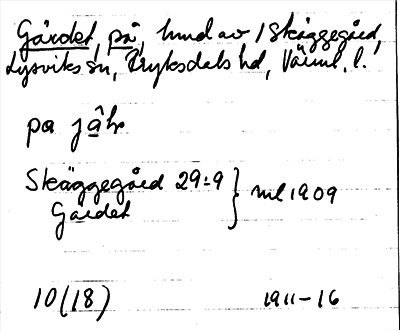 Gärdet, på, hmd av 1 Skäggegård,
Lysviks sn, Fryksdals hd, Värml. l.
pa jâ̱ḷe
Skäggegård 29:9 } ml 1909
Gärdet
10(18) 1911-16